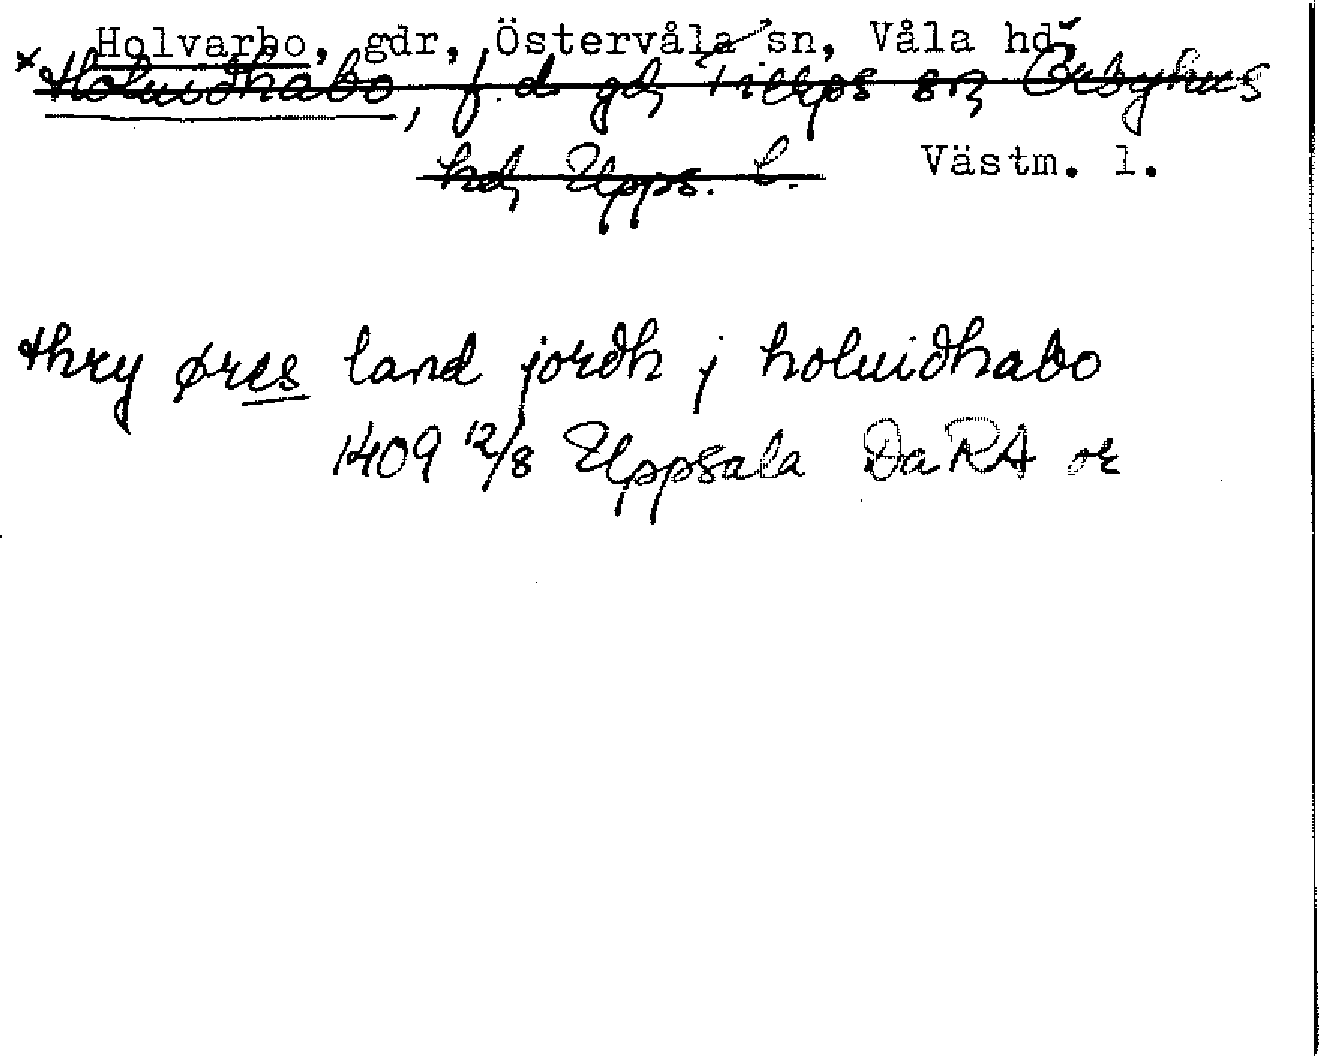 Holvarbo, gdr, Östervåla sn, Våla hd,
*Holuidhabo, f. d. gd, Tierps sn, Örbyhus
hd, Upps. l. Västm. l.
thry øres land jordh j holuidhabo
1409 12/8 Uppsala DaRA or